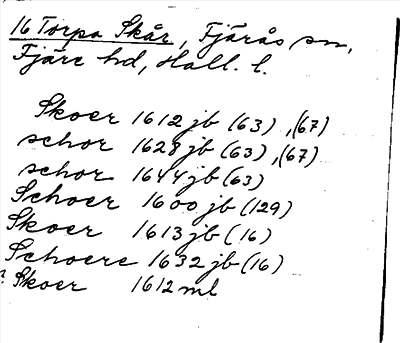 16 Torpa Skår, Fjärås sn,
Fjäre hd, Hall. l.
Skoer 1612 jb (63), (67)
schor 1628 jb (63), (67)
schor 1644 jb (63)
Schoer 1600 jb (129)
Skoer 1613 jb (16)
Schoere 1632 jb (16)
? Skoer 1612 ml